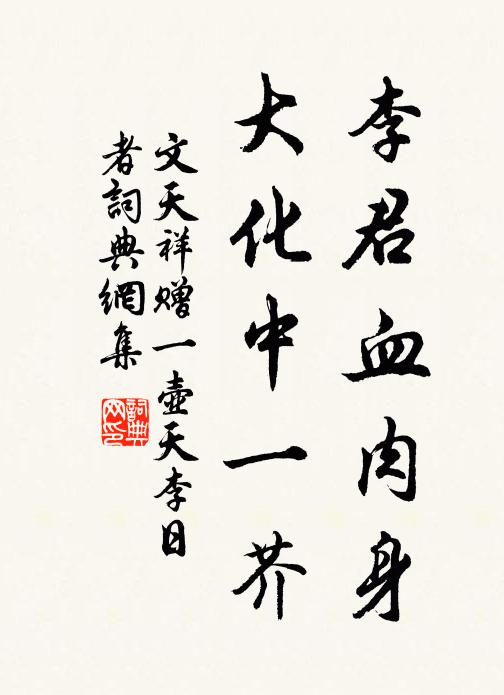 李君血肉身
大化中一芥
文天祥贈一壺天李日
者詞典網集
詞典
网印